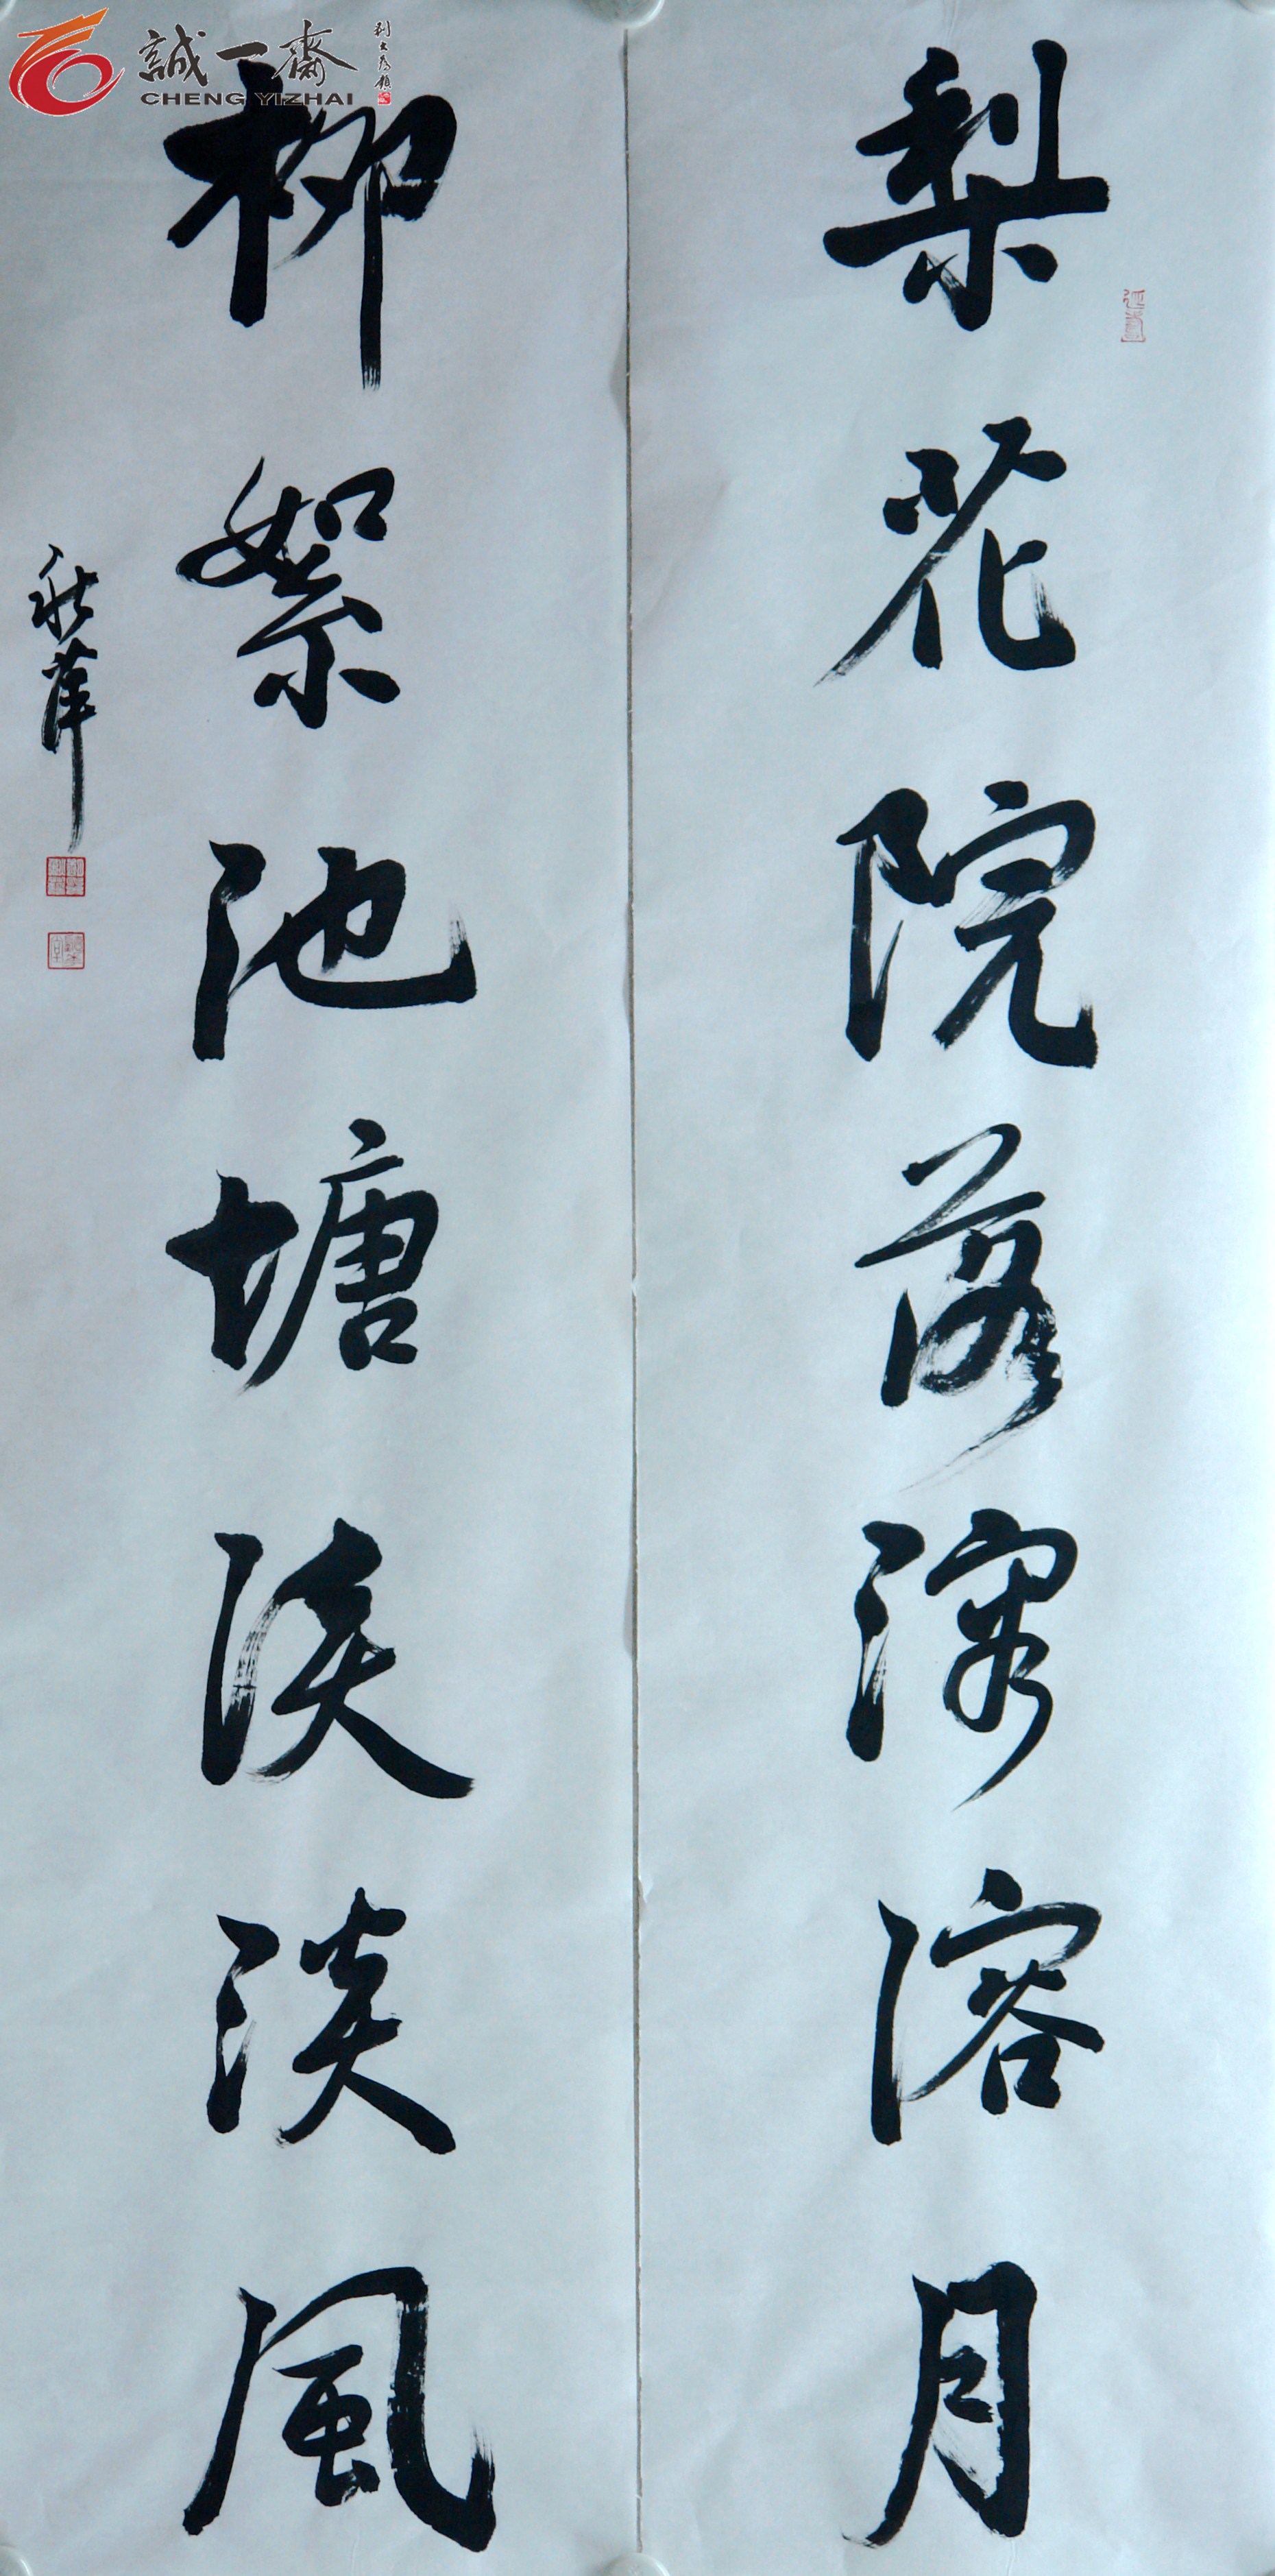 誠一齋
CHENG YIZHAI
梨花院落溶溶月
柳絮池塘淡淡風
秋萍